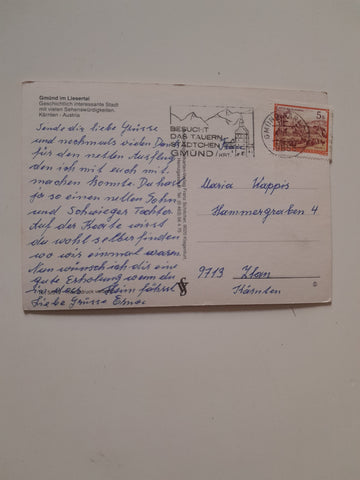 Gmünd im Liesertal
Geschichtlich interessante Stadt
mit vielen Sehenswürdigkeiten.
Kärnten · Austria
BESUCHT
DAS TAUERN
STÄDTCHEN
GMÜND
GMÜND
5 S
Sende dir liebe Grüsse
und nochmals vielen Dank
für den netten Ausflug
den ich mit euch mit
machen konnte. Du hast
ja so einen netten Sohn
und Schwieger Tochter
auf der Karte wirst
du wohl selber finden
wo wir einmal waren.
Nun wünsch ich dir eine
gute Erholung wenn du
in das Heim fährst
Liebe Grüsse Erna
Maria Kappis
Hammergraben 4
9713 Zlan
Kärnten